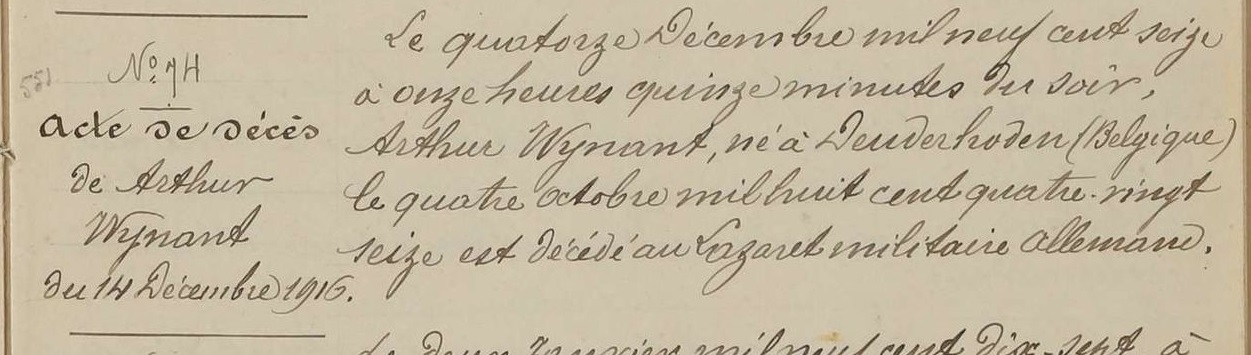 551
Nº 74
acte de décès
de Arthur
Wynant
du 14 Décembre 1916.
Le quatorze Décembre mil neuf cent seize
à onze heures quinze minutes du soir,
Arthur Wynant, né à Denderhoden (Belgique)
le quatre octobre mil huit cent quatre-vingt
seize est décédé au Lazaret militaire allemand.
Le deux Janvier mil neuf cent dix-sept à